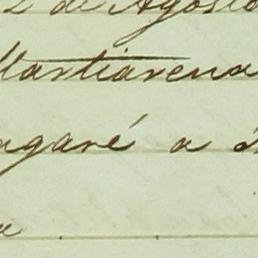 2 de Agosto
Martiarena
agaré a